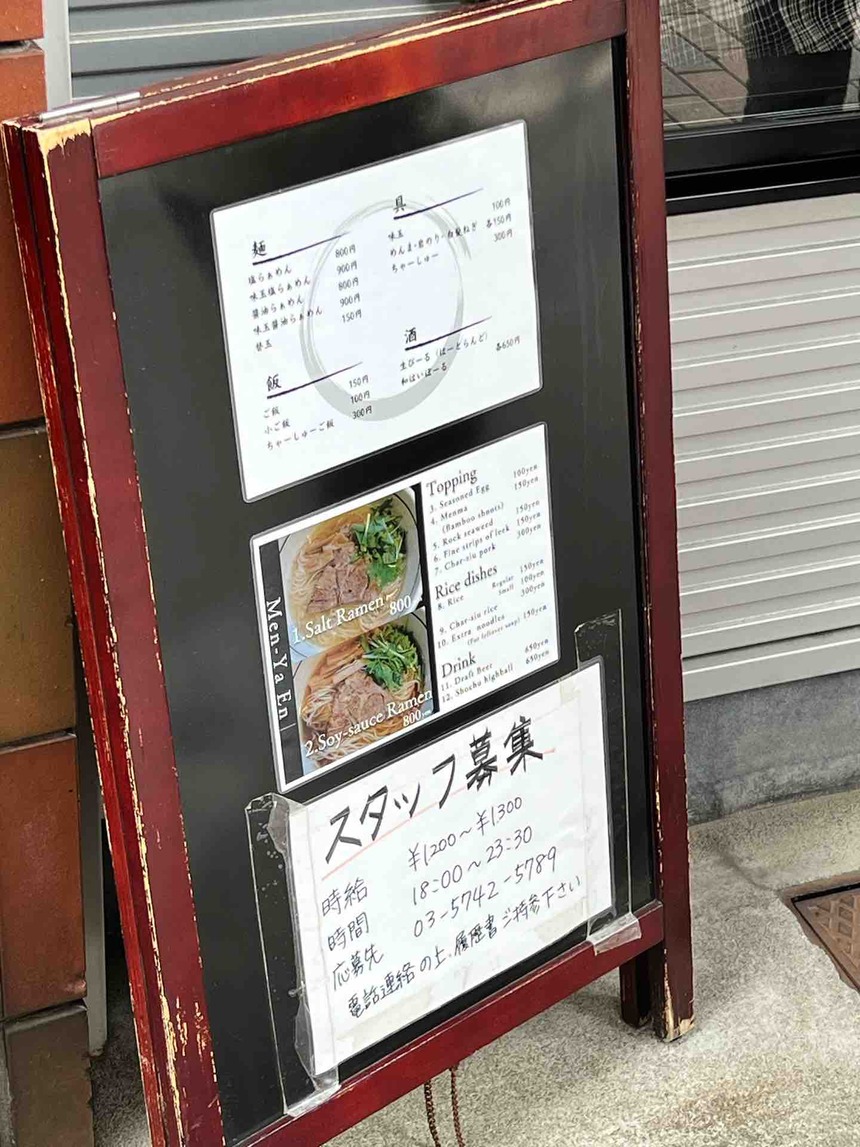 麺
塩らぁめん 800円
味玉塩らぁめん 900円
醤油らぁめん 800円
味玉醤油らぁめん 900円
替玉 150円
飯
ご飯 150円
小ご飯 100円
ちゃーしゅーご飯 300円
具
味玉 100円
めんま・岩のり・白髪ねぎ 各150円
ちゃーしゅー 300円
酒
生びーる（はーとらんど）
和はいぼーる 各650円
Men-Ya En
1.Salt Ramen 800
2.Soy-sauce Ramen
800yen
Topping
3. Seasoned Egg 100yen
4. Menma 150yen
(Bamboo shoots)
5. Rock seaweed 150yen
6. Fine strips of leek 150yen
7. Char-siu pork 300yen
Rice dishes
8. Rice Regular 150yen
Small 100yen
9. Char-siu rice 300yen
10. Extra noodles 150yen
(For leftover soup)
Drink
11. Draft Beer 650yen
12. Shochu highball 650yen
スタッフ募集
時給 ¥1200～¥1300
時間 18:00～23:30
応募先 03-5742-5789
電話連絡の上、履歴書ご持参下さい